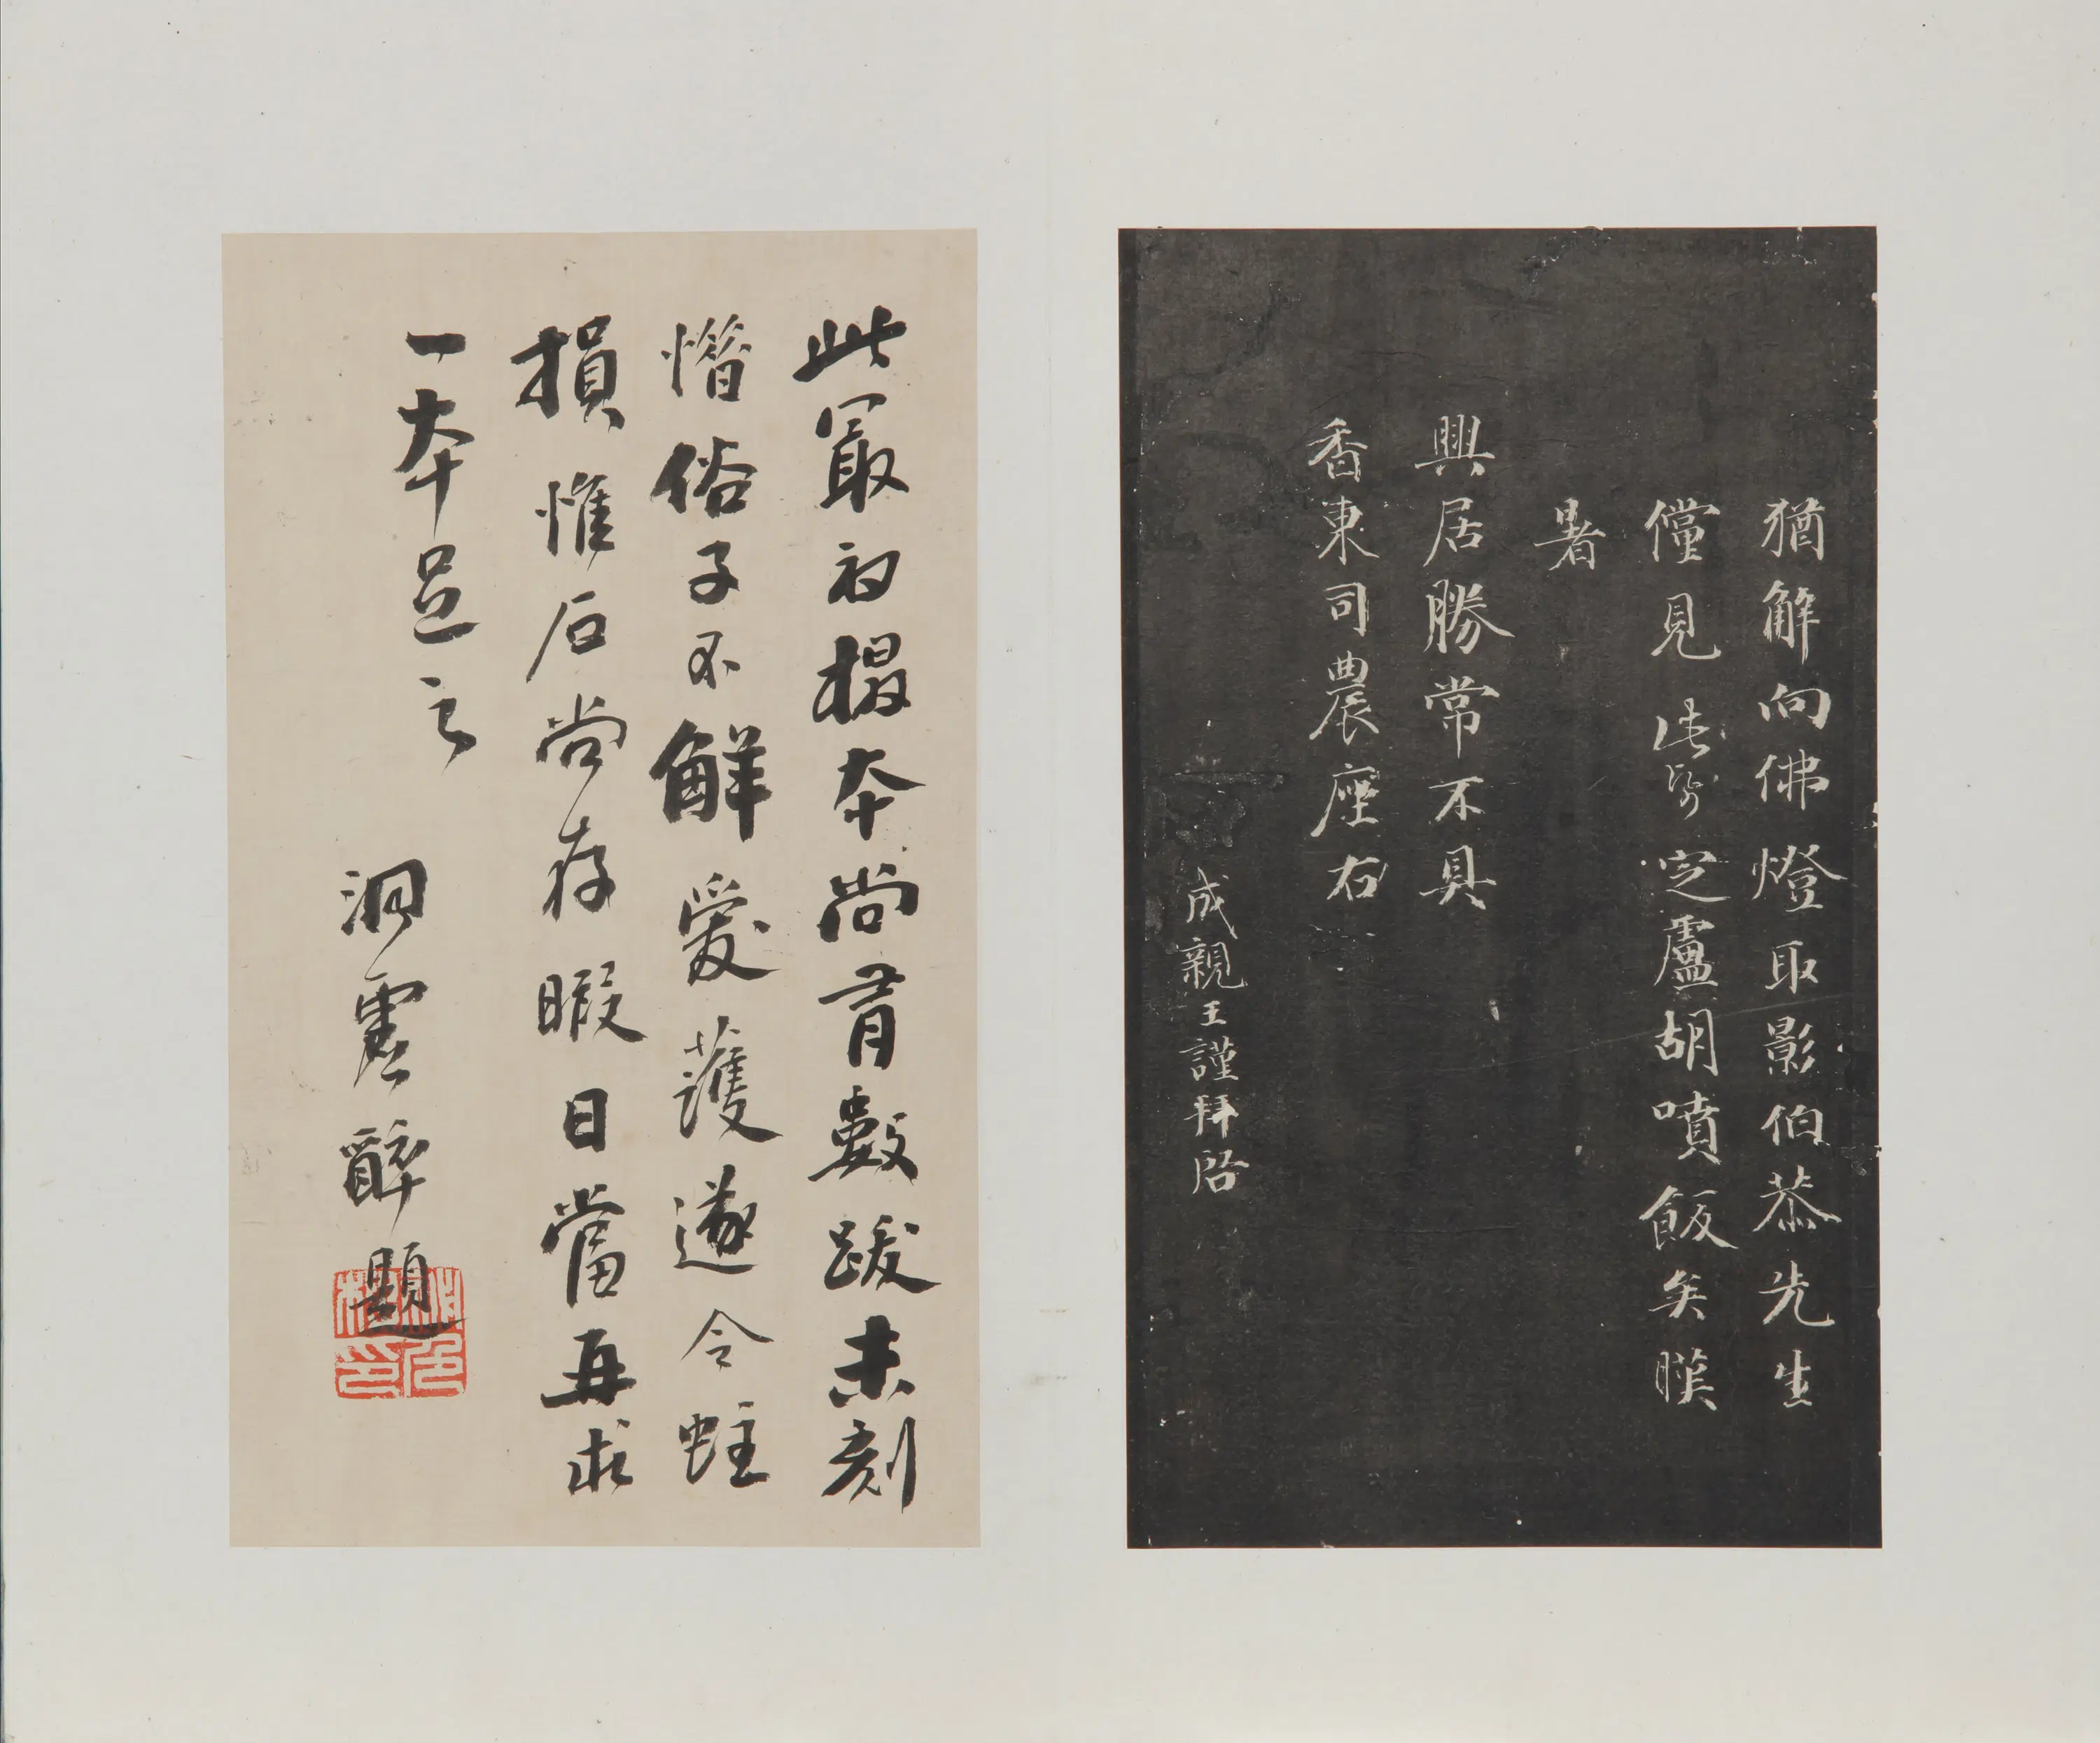 猶解向佛燈取影伯恭先生
儻見此紙定盧胡噴飯矣暵
暑
興居勝常不具
香東司農座右
成親王謹拜啓
此冣初搨本尚有數跋未刻
惜俗子不解愛護遂令蛀
損惟石尚存暇日當再求
一本足之
洞虛醉題